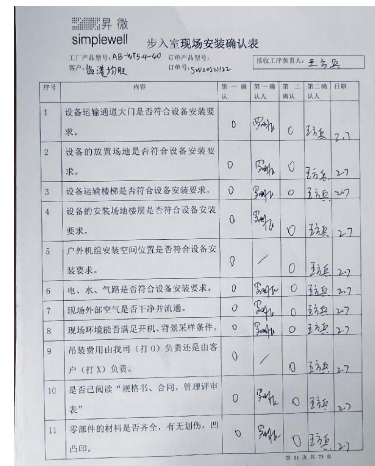 昇微
simplewell
步入室现场安装确认表
工厂产品型号: 订单产品型号:
客户: 订单号: 接收工序负责人:
序号 内容 第一确认 第一确认人 第二确认 第二确认人 日期
1 设备运输通道大门是否符合设备安装要求。 0 0 2-7
2 设备的放置场地是否符合设备安装要求。 0 0 2-7
3 设备运输楼梯是否符合设备安装要求。 0 0 2-7
4 设备的安装场地楼层是否符合设备安装要求。 0 0 2-7
5 户外机组安装空间位置是否符合设备安装要求。 0 / 0 2-7
6 电、水、气路是否符合设备安装要求。 0 0 2-7
7 现场外部空气是否干净并流通。 0 0 2-7
8 现场环境能否满足开机、背景采样条件。 0 0 2-7
9 吊装费用由我司（打O）负责还是由客户（打X）负责。 0 / 0 2-7
10 是否已阅读“规格书、合同、管理评审表” 0 0 2-7
11 零部件的材料是否齐全，有无划伤，凹凸印。 0 0 2-7